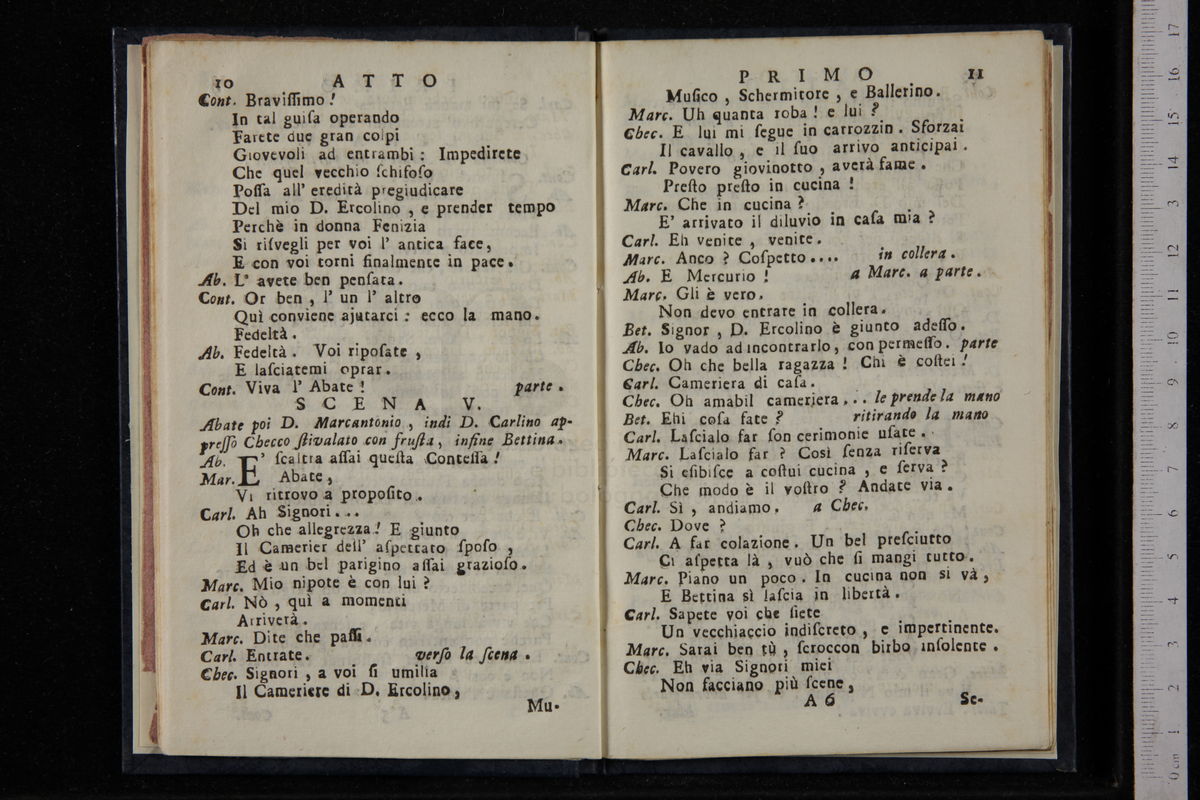 10 ATTO
Cont. Braviſſimo!
In tal guiſa operando
Farete due gran colpi
Giovevoli ad entrambi: Impedirete
Che quel vecchio ſchifoſo
Poſſa all' eredità pregiudicare
Del mio D. Ercolino, e prender tempo
Perchè in donna Fenizia
Si riſvegli per voi l' antica face,
E con voi torni finalmente in pace.
Ab. L' avete ben penſata.
Cont. Or ben, l' un l' altro
Quì conviene ajutarci: ecco la mano.
Fedeltà.
Ab. Fedeltà. Voi ripoſate,
E laſciatemi oprar.
Cont. Viva l' Abate! parte.
SCENA V.
Abate poi D. Marcantonio, indi D. Carlino ap-
preſſo Checco ſtivalato con fruſta, infine Bettina.
Ab. E' ſcaltra aſſai queſta Conteſſa!
Mar. Abate,
Vi ritrovo a propoſito.
Carl. Ah Signori...
Oh che allegrezza! E giunto
Il Camerier dell' aſpettato ſpoſo,
Ed è un bel parigino aſſai grazioſo.
Marc. Mio nipote è con lui?
Carl. Nò, quì a momenti
Arriverà.
Marc. Dite che paſſi.
Carl. Entrate. verſo la ſcena.
Chec. Signori, a voi ſi umilia
Il Cameriere di D. Ercolino,
Mu-
PRIMO 11
Muſico, Schermitore, e Ballerino.
Marc. Uh quanta roba! e lui?
Chec. E lui mi ſegue in carrozzin. Sforzai
Il cavallo, e il ſuo arrivo anticipai.
Carl. Povero giovinotto, averà fame.
Preſto preſto in cucina!
Marc. Che in cucina?
E' arrivato il diluvio in caſa mia?
Carl. Eh venite, venite.
Marc. Anco? Coſpetto.... in collera.
Ab. E Mercurio! a Marc. a parte.
Marc. Gli è vero.
Non devo entrare in collera.
Bet. Signor, D. Ercolino è giunto adeſſo.
Ab. Io vado ad incontrarlo, con permeſſo. parte
Chec. Oh che bella ragazza! Chi è coſtei!
Carl. Cameriera di caſa.
Chec. Oh amabil cameriera... le prende la mano
Bet. Ehi coſa fate? ritirando la mano
Carl. Laſcialo far ſon cerimonie uſate.
Marc. Laſcialo far? Così ſenza riſerva
Si eſibiſce a coſtui cucina, e ſerva?
Che modo è il voſtro? Andate via.
Carl. Sì, andiamo. a Chec.
Chec. Dove?
Carl. A far colazione. Un bel preſciutto
Ci aſpetta là, vuò che ſi mangi tutto.
Marc. Piano un poco. In cucina non si và,
E Bettina sì laſcia in libertà.
Carl. Sapete voi che ſiete
Un vecchiaccio indiſcreto, e impertinente.
Marc. Sarai ben tù, ſcroccon birbo inſolente.
Chec. Eh via Signori miei
Non facciano più ſcene,
A 6 Se-
0 cm 1 2 3 4 5 6 7 8 9 10 11 12 3 14 15 16 17